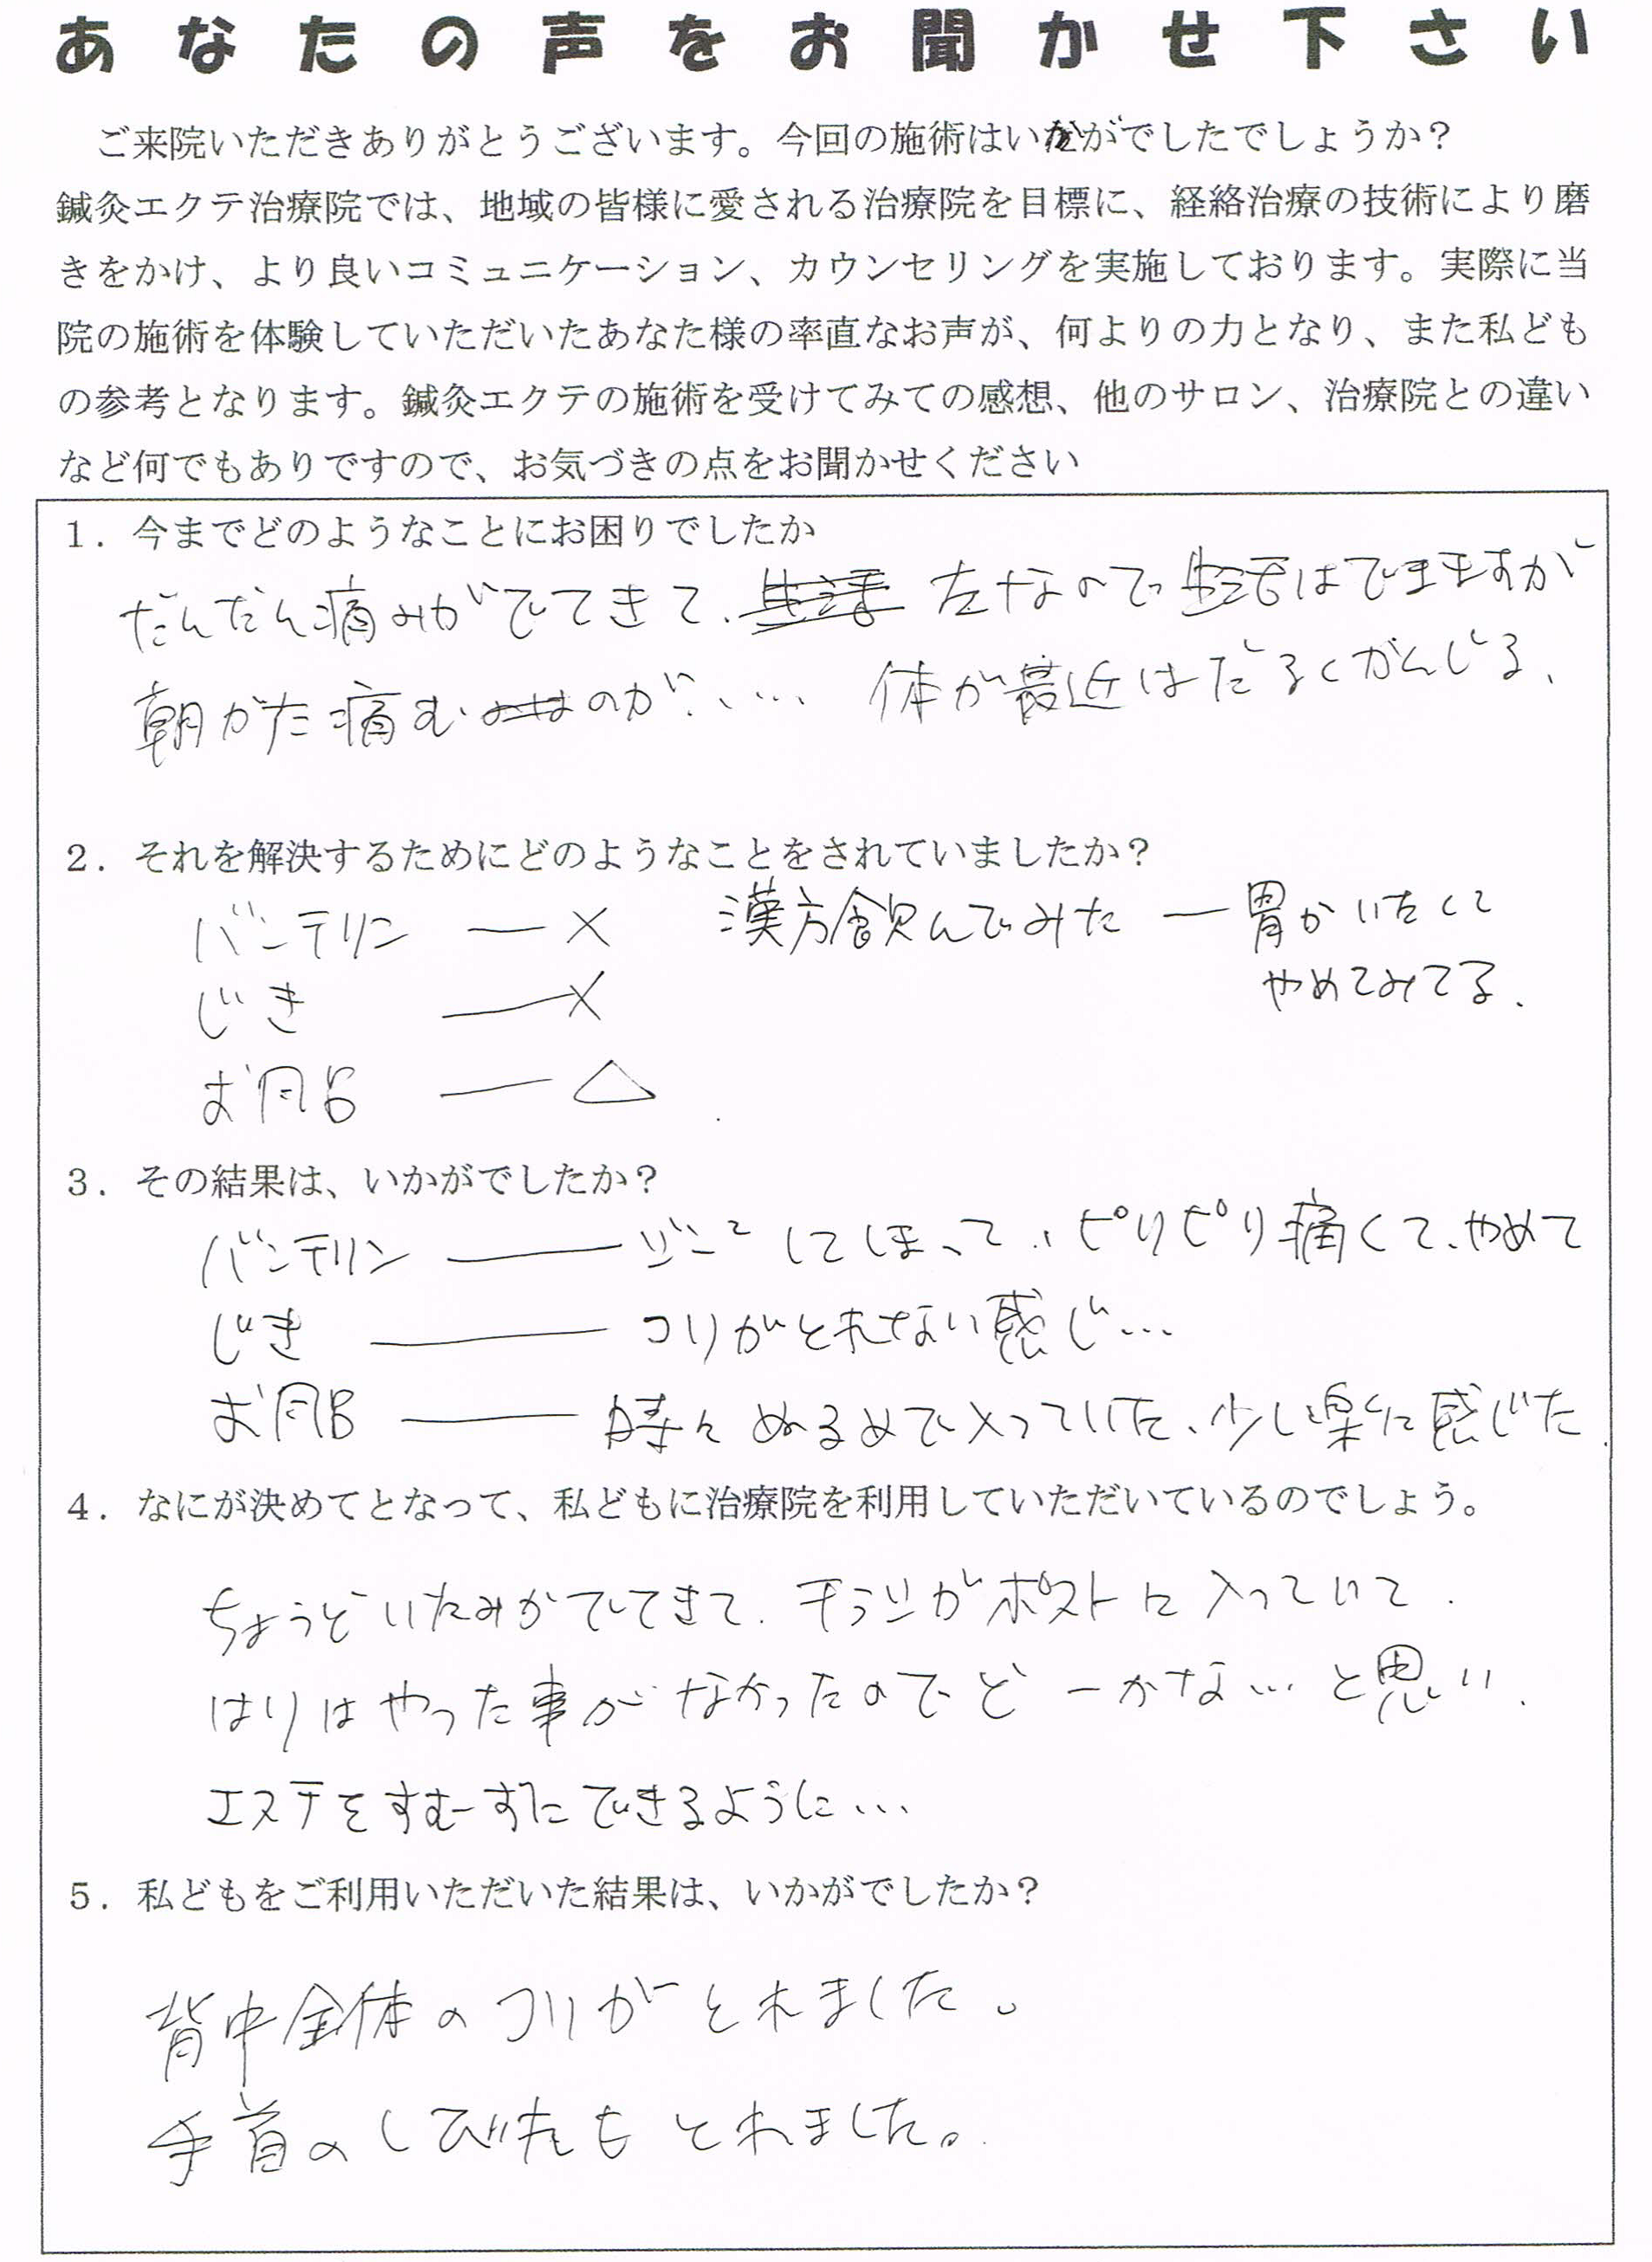 あなたの声をお聞かせ下さい
ご来院いただきありがとうございます。今回の施術はいかがでしたでしょうか？
鍼灸エクテ治療院では、地域の皆様に愛される治療院を目標に、経絡治療の技術により磨
きをかけ、より良いコミュニケーション、カウンセリングを実施しております。実際に当
院の施術を体験していただいたあなた様の率直なお声が、何よりの力となり、また私ども
の参考となります。鍼灸エクテの施術を受けてみての感想、他のサロン、治療院との違い
など何でもありですので、お気づきの点をお聞かせください
１．今までどのようなことにお困りでしたか
だんだん痛みがでてきて、生活 左なので生活はできますが
朝がた痛むのが、…. 体が最近はだるくがんじる、
２．それを解決するためにどのようなことをされていましたか？
バンテリン ― × 漢方飲んでみた ― 胃かいたくて
やめてみてる.
じき ― ×
お風呂 ― △
３．その結果は、いかがでしたか？
バンテリン ― してほって、ピリピリ痛くて、やめて
じき ― コリがとれない感じ…
お風呂 ― 時々ぬるめで入っていた、少し楽に感じた.
４．なにが決めてとなって、私どもに治療院を利用していただいているのでしょう。
ちょうどいたみがでてきて、チラシがポストに入っていて.
はりはやった事がなかったのでどーかな…と思い.
エステをすむーずにできるように…
５．私どもをご利用いただいた結果は、いかがでしたか？
背中全体のコリがとれました。
手首のしびれもとれました。